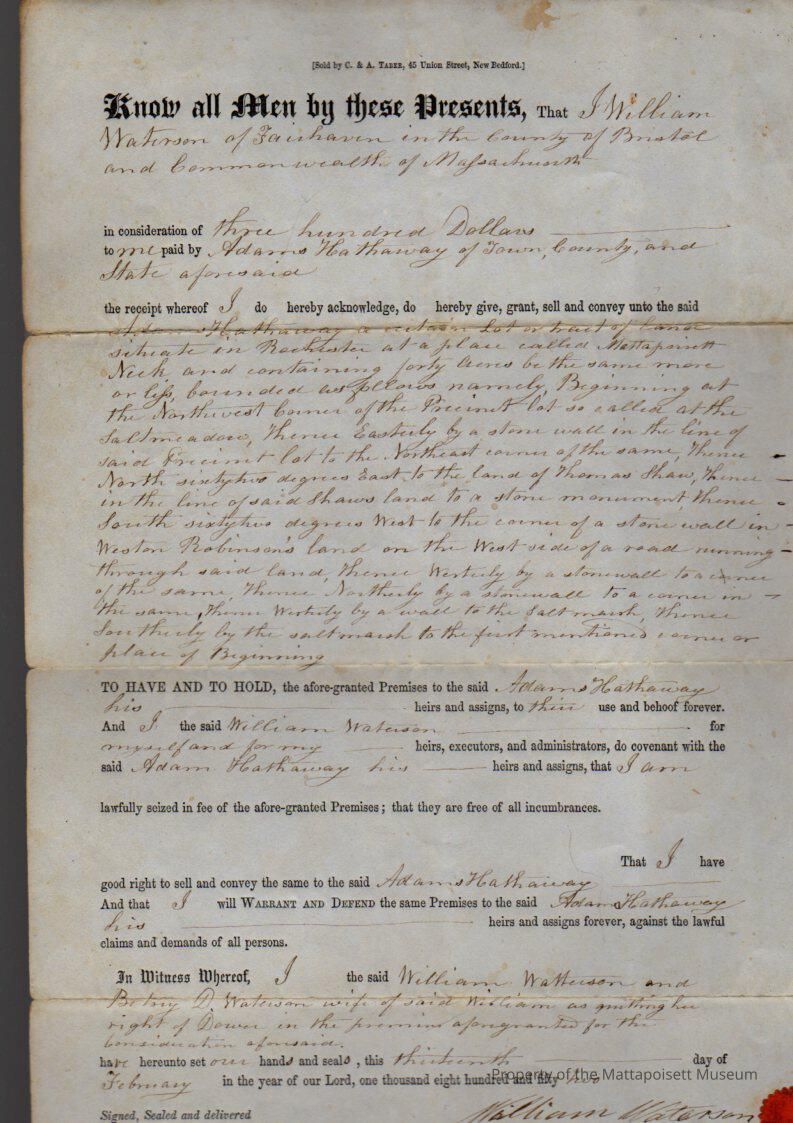 [Sold by C. & A. TABER, 45 Union Street, New Bedford.]
Know all Men by these Presents, That I William
Waterson of Fairhaven in the County of Bristol
and Commonwealth of Massachusetts
in consideration of three hundred Dollars
to me paid by Adams Hathaway of Town, County, and
State aforesaid
the receipt whereof I do hereby acknowledge, do hereby give, grant, sell and convey unto the said
Adams Hathaway a certain Lot or tract of Land
situate in Rochester at a place called Mattapoisett
Neck and containing forty Acres be the same more
or less, bounded as follows namely, Beginning at
the Northwest Corner of the Precinct lot so called at the
Saltmeadow, thence Easterly by a stone wall in the line of
said Precinct lot to the Northeast corner of the same, thence
North sixtytwo degrees East to the land of Thomas Shaw, thence
in the line of said Shaws land to a stone monument, thence
South sixtytwo degrees West to the corner of a stone wall in
Weston Robinson's land on the West side of a road running
through said land, thence Westerly by a stonewall to a corner
of the same, thence Northerly by a stonewall to a corner in
the same, thence Westerly by a wall to the Salt marsh, thence
Southerly by the saltmarsh to the first mentioned corner or
place of Beginning
TO HAVE AND TO HOLD, the afore-granted Premises to the said Adams Hathaway
his heirs and assigns, to their use and behoof forever.
And I the said William Waterson for
myself and for my heirs, executors, and administrators, do covenant with the
said Adam Hathaway his heirs and assigns, that I am
lawfully seized in fee of the afore-granted Premises; that they are free of all incumbrances.
That I have
good right to sell and convey the same to the said Adams Hathaway
And that I will WARRANT AND DEFEND the same Premises to the said Adams Hathaway
his heirs and assigns forever, against the lawful
claims and demands of all persons.
In Witness Whereof, I the said William Watterson and
D Waterson wife of said William as quitting her
right of Dower in the premises aforegranted for the
Consideration aforesaid.
have hereunto set our hands and seals, this thirteenth day of
February in the year of our Lord, one thousand eight hundred and fifty two
Property of the Mattapoisett Museum
Signed, Sealed and delivered
William Waterson